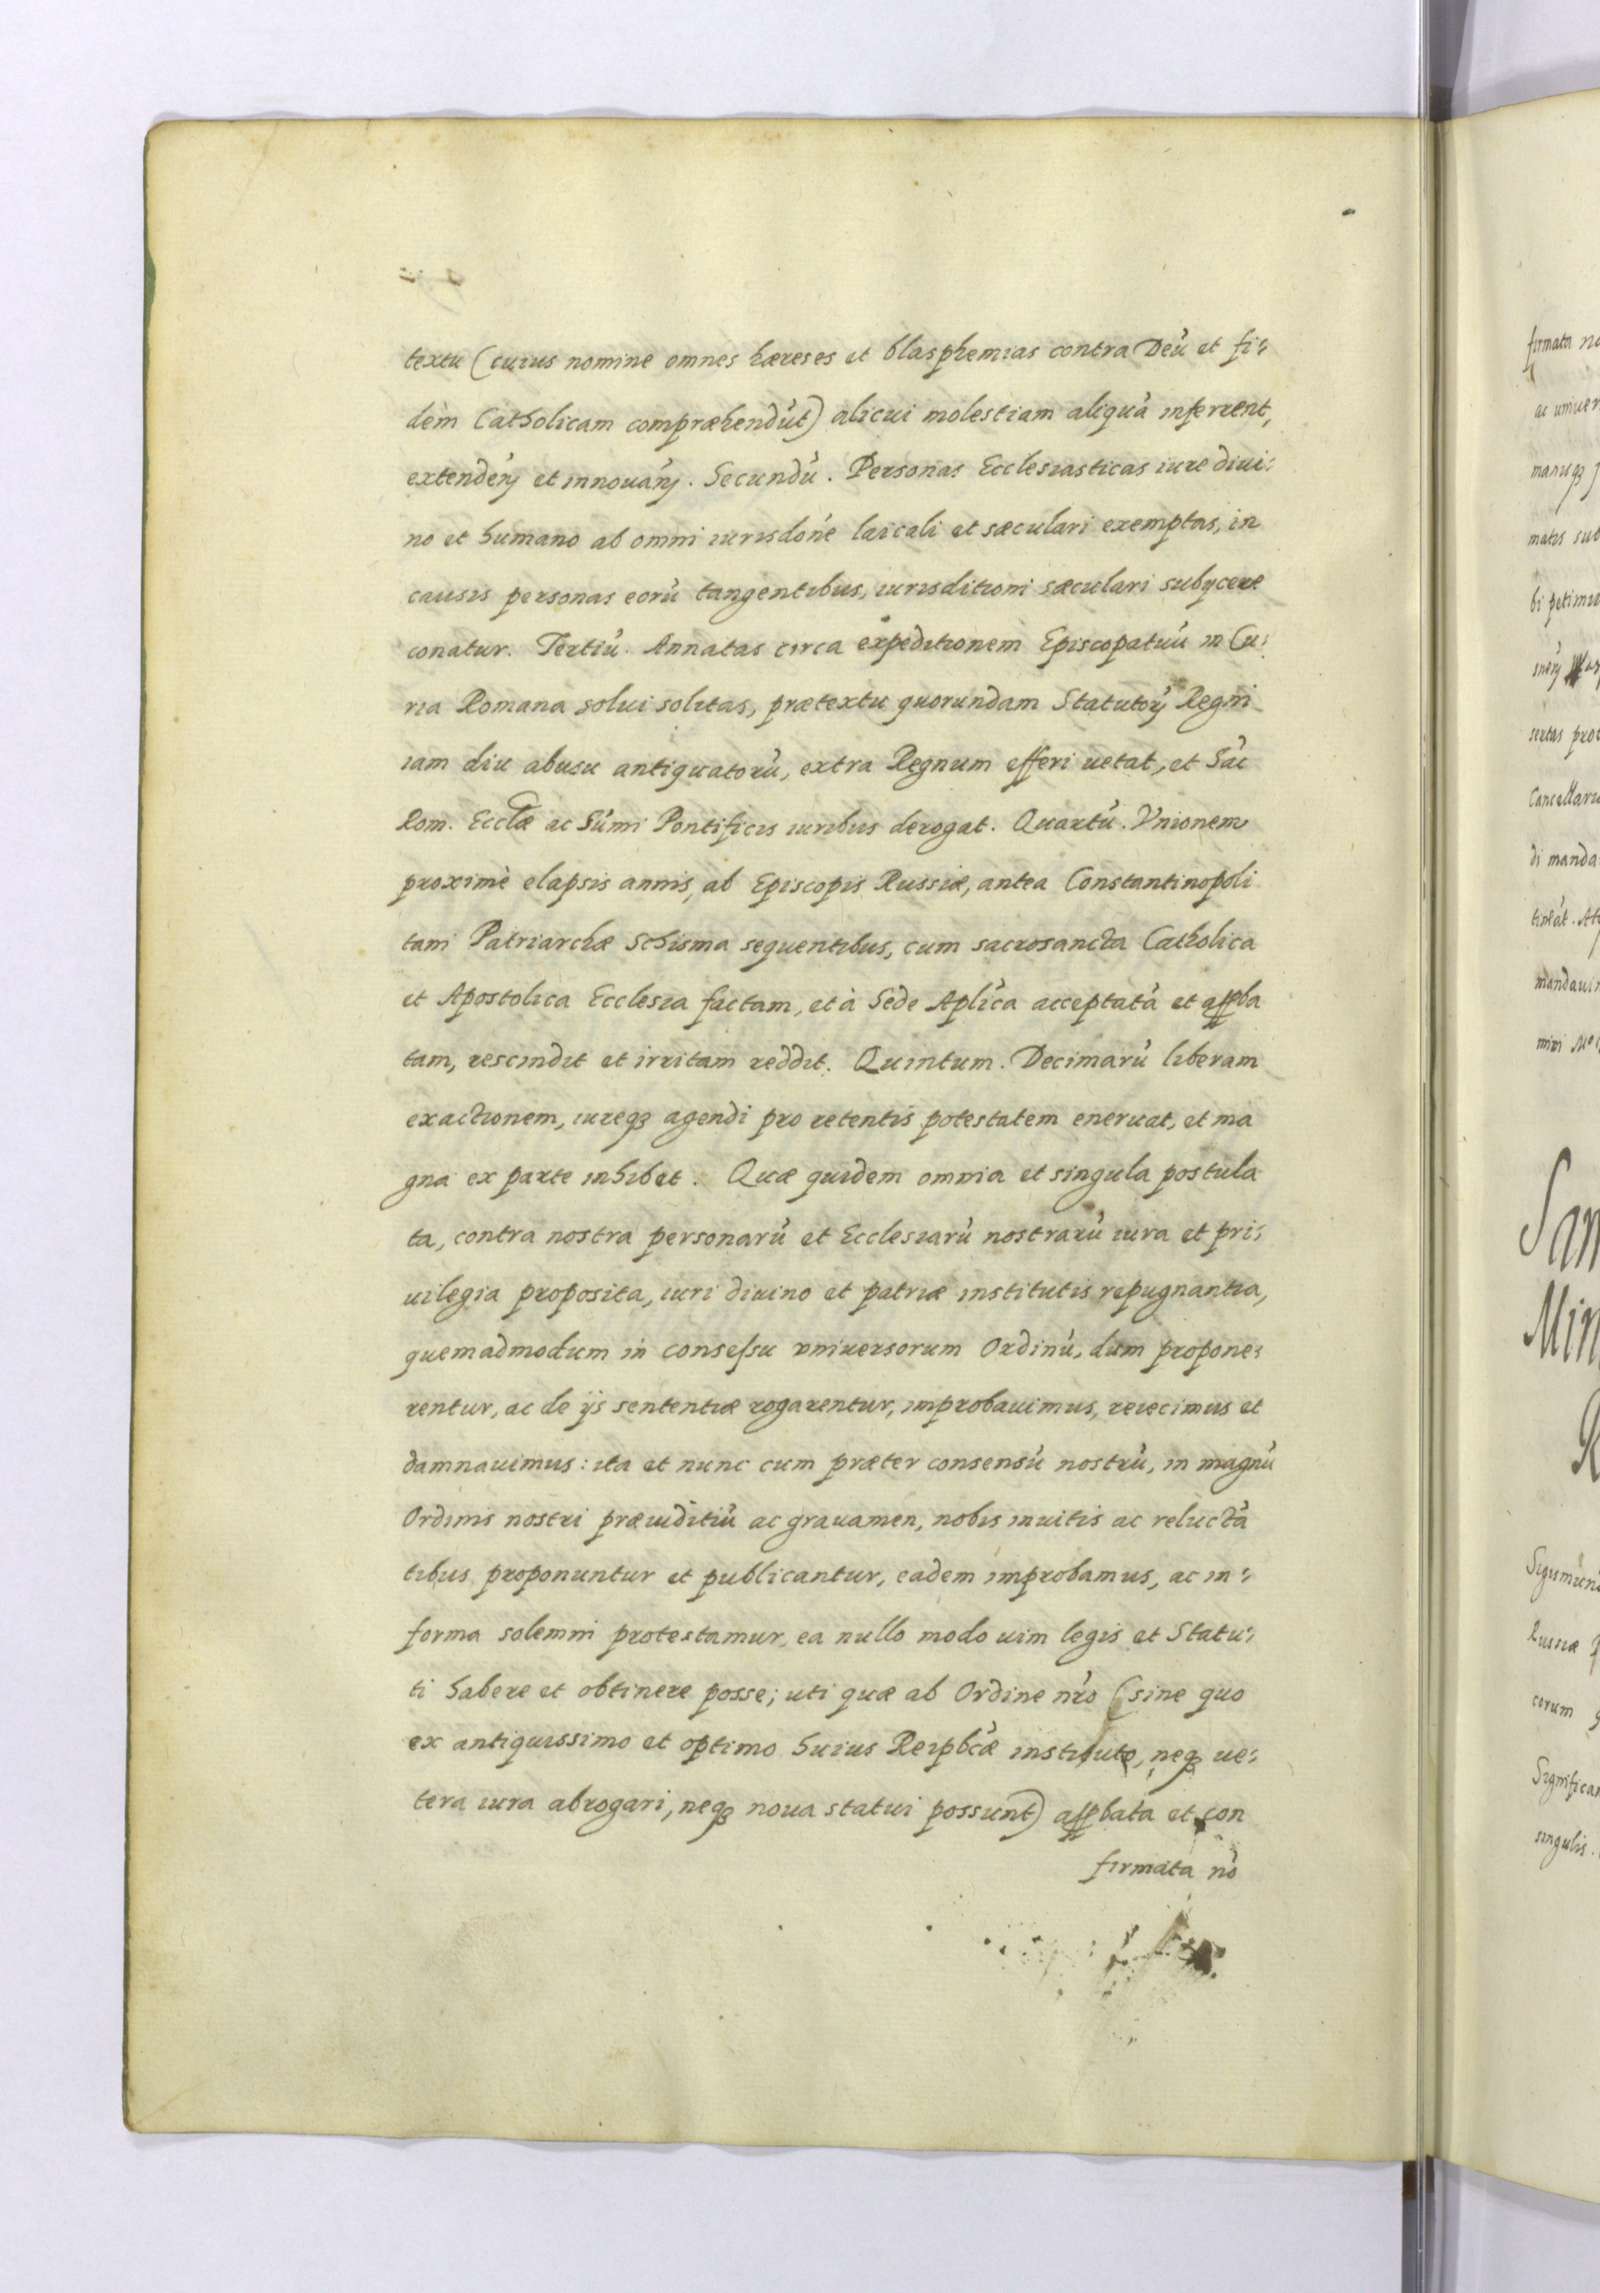 textu (cuius nomine omnes hæreses et blasphemias contra Deū et fi=
dem Catholicam compræhendūt) alicui molestiam aliquā inferrent,
extendēȷ et innouāȷ. Secundū. Personas Ecclesiasticas iure diui=
no et humano ab omni iurisdōne laicali et sæculari exemptas, in
causis personas eorū tangentibus, iurisditioni sæculari subycere
conatur. Tertiū. Annatas circa expeditionem Episcopatuū in Cu=
ria Romana solui solitas, prætextu quorundam Statutoȷ Regni
iam diu abusu antiquatorū, extra Regnum efferi uetat, et Sāc
Rom. Ecclæ ac Sūmi Pontificis iuribus derogat. Quartū. Vnionem
proximè elapsis annis, ab Episcopis Russiæ, antea Constantinopoli
tani Patriarchæ Schisma sequentibus, cum sacrosancta Catholica
et Apostolica Ecclesia factam, et à Sede Aplīca acceptatā et appba
tam, rescindit et irritam reddit. Quintum. Decimarū liberam
exactionem, iureqʒ agendi pro retentis potestatem eneruat, et ma
gna ex parte inhibet. Quæ quidem omnia et singula postula
ta, contra nostra personarū et Ecclesiarū nostrarū iura et pri=
uilegia proposita, iuri diuino et patriæ institutis repugnantia,
quemadmodum in consessu vniuersorum Ordinū, dum propone=
rentur, ac de ijs sententiæ rogarentur, improbauimus, reiecimus et
damnauimus: ita et nunc cum præter consensū nostrū, in magnū
Ordinis nostri præiuditiū ac grauamen, nobis inuitis ac reluctā
tibus proponuntur et publicantur, eadem improbamus, ac in=
forma solemni protestamur, ea nullo modo uim legis et Statu=
ti habere et obtinere posse; uti quæ ab Ordine nr̄o (sine quo
ex antiquissimo et optimo huius Reipbcæ instituto, neqʒ ue=
tera iura abrogari, neqʒ noua statui possunt) appbata et con
firmata nō
firmata no
ac uniuer
manuqʒ
matis sub
bi petimu
sertas pro
Cancellari
di manda
tinēt. At
mandaui
San
Min
R
Sigismūn
Russiæ
corum
Significa
singulis.